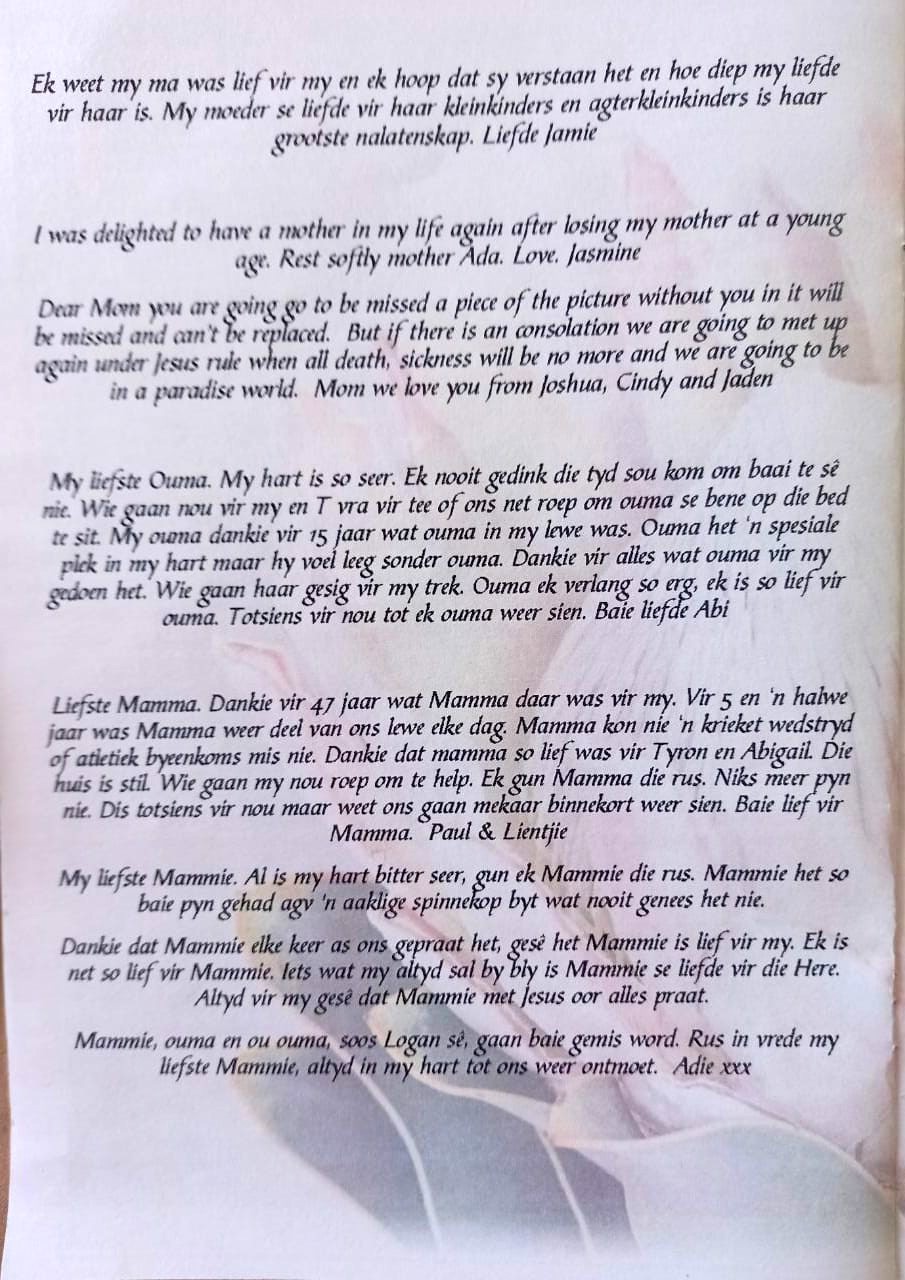 Ek weet my ma was lief vir my en ek hoop dat sy verstaan het en hoe diep my liefde
vir haar is. My moeder se liefde vir haar kleinkinders en agterkleinkinders is haar
grootste nalatenskap. Liefde Jamie
I was delighted to have a mother in my life again after losing my mother at a young
age. Rest softly mother Ada. Love. Jasmine
Dear Mom you are going go to be missed a piece of the picture without you in it will
be missed and can't be replaced. But if there is an consolation we are going to met up
again under Jesus rule when all death, sickness will be no more and we are going to be
in a paradise world. Mom we love you from Joshua, Cindy and Jaden
My liefste Ouma. My hart is so seer. Ek nooit gedink die tyd sou kom om baai te sê
nie. Wie gaan nou vir my en T vra vir tee of ons net roep om ouma se bene op die bed
te sit. My ouma dankie vir 15 jaar wat ouma in my lewe was. Ouma het 'n spesiale
plek in my hart maar hy voel leeg sonder ouma. Dankie vir alles wat ouma vir my
gedoen het. Wie gaan haar gesig vir my trek. Ouma ek verlang so erg, ek is so lief vir
ouma. Totsiens vir nou tot ek ouma weer sien. Baie liefde Abi
Liefste Mamma. Dankie vir 47 jaar wat Mamma daar was vir my. Vir 5 en 'n halwe
jaar was Mamma weer deel van ons lewe elke dag. Mamma kon nie 'n krieket wedstryd
of atletiek byeenkoms mis nie. Dankie dat mamma so lief was vir Tyron en Abigail. Die
huis is stil. Wie gaan my nou roep om te help. Ek gun Mamma die rus. Niks meer pyn
nie. Dis totsiens vir nou maar weet ons gaan mekaar binnekort weer sien. Baie lief vir
Mamma. Paul & Lientjie
My liefste Mammie. Al is my hart bitter seer, gun ek Mammie die rus. Mammie het so
baie pyn gehad agv 'n aaklige spinnekop byt wat nooit genees het nie.
Dankie dat Mammie elke keer as ons gepraat het, gesê het Mammie is lief vir my. Ek is
net so lief vir Mammie. Iets wat my altyd sal by bly is Mammie se liefde vir die Here.
Altyd vir my gesê dat Mammie met Jesus oor alles praat.
Mammie, ouma en ou ouma, soos Logan sê, gaan baie gemis word. Rus in vrede my
liefste Mammie, altyd in my hart tot ons weer ontmoet. Adie xxx